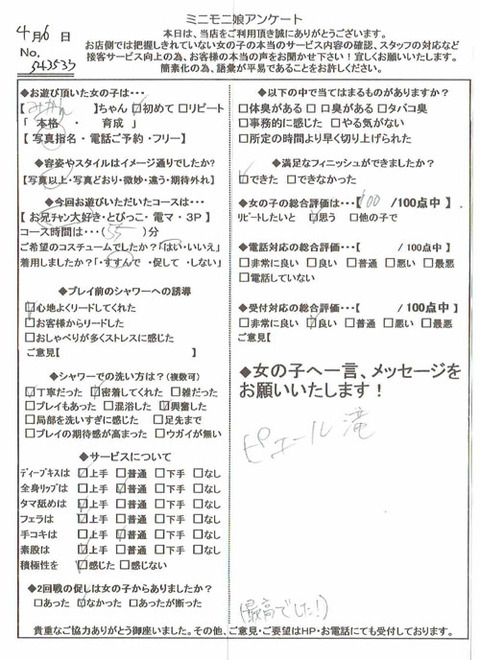 ミニモニ娘アンケート
4月6日
No.
本日は、当店をご利用頂き誠にありがとうございます。
お店側では把握しきれていない女の子の本当のサービス内容の確認、スタッフの対応など
接客サービス向上の為、お客様の本当の声をお聞かせ下さい！宜しくお願いします。
簡素化の為、語彙が平易であることをお許しください。
◆お遊び頂いた女の子は・・・
【みかん】ちゃん □初めて □リピート
「 本格 ・ 育成 」
【 写真指名・電話ご予約・フリー】
◆容姿やスタイルはイメージ通りでしたか?
【写真以上・写真どおり・微妙・違う・期待外れ】
◆今回お遊びいただいたコースは・・・
【お兄チャン大好き・とびっこ・電マ・3P】
コース時間は・・・(55)分
ご希望のコスチュームでしたか?「はい・いいえ」
着用しましたか?「・すすんで ・促して ・しない」
◆プレイ前のシャワーへの誘導
□心地よくリードしてくれた
□お客様からリードした
□おしゃべりが多くストレスに感じた
ご意見【 】
◆シャワーでの洗い方は？(複数可)
□丁寧だった □密着してくれた □雑だった
□プレイもあった □混浴した □興奮した
□局部を洗いすぎに感じた □足先まで
□プレイの期待感が高まった □ウガイが無い
◆サービスについて
ディープキスは □上手 □普通 □下手 □なし
全身リップは □上手 □普通 □下手 □なし
タマ舐めは □上手 □普通 □下手 □なし
フェラは □上手 □普通 □下手 □なし
手コキは □上手 □普通 □下手 □なし
素股は □上手 □普通 □下手 □なし
積極性を □感じた □感じない
◆2回戦の促しは女の子からありましたか？
□あった □なかった □あったが断った
◆以下の中で当てはまるものがありますか？
□体臭がある □口臭がある □タバコ臭
□事務的に感じた □やる気がない
□所定の時間より早く切り上げられた
◆満足なフィニッシュができましたか？
□できた □できなかった
◆女の子の総合評価は・・・【 100 /100点中 】
リピートしたいと □思う □他の子で
◆電話対応の総合評価・・・【 /100点中 】
□非常に良い □良い □普通 □悪い □最悪
□電話していない
◆受付対応の総合評価・・・【 /100点中 】
□非常に良い □良い □普通 □悪い □最悪
ご意見【
◆女の子へ一言、メッセージを
お願いいたします！
ピエール滝
(最高でした!)
貴重なご協力ありがとう御座いました。その他、ご意見・ご要望はHP・お電話にても受付しております。